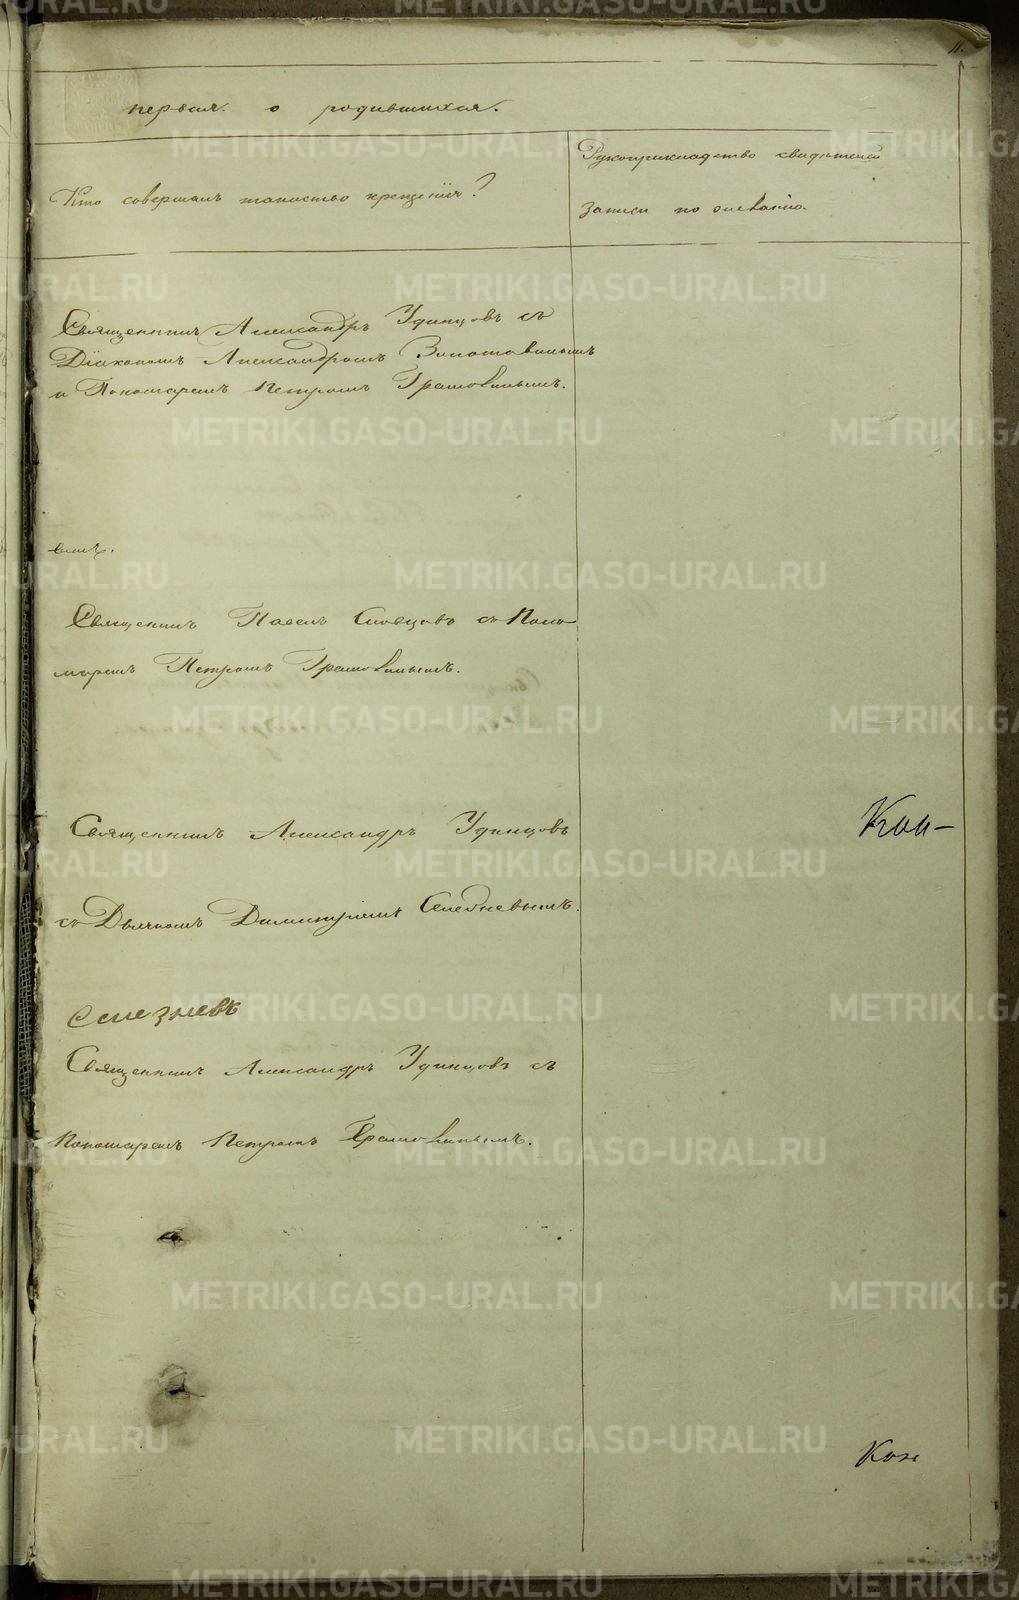 11.
первая. о родившихся.
Кто совершалъ таинство крещенія?
Рукоприкладство свидѣтелей
записи по желанію.
Священникъ Александръ Удинцовъ съ
Діакономъ Александромъ
и Пономаремъ Петромъ Грамолинымъ.
Священникъ Павелъ Словцовъ съ Поно
маремъ Петромъ Грамолинымъ.
Священникъ Александръ Удинцовъ
съ Дьячкомъ Димитріемъ Селезневымъ.
Селезневъ
Священникъ Александръ Удинцовъ съ
Пономаремъ Петромъ Грамолинымъ.
METRIKI.GASO-URAL.RU